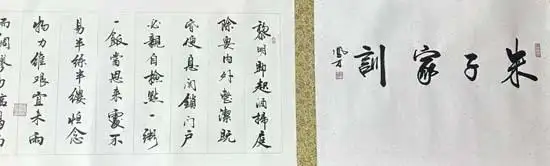 朱子家訓
黎明即起洒掃庭
除要内外整潔既
昏便息關鎖门户
必親自檢點一粥
一飯當思来處不
易半絲半縷恒念
物力維艱宜未雨
而綢繆勿臨渴而